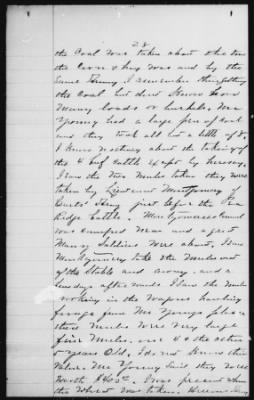 28
the Coal was taken about when
the Corn & hay was and by the
same Army. I remember them getting
the coal but dont know how
many loads or bushels. Mr
Young had a large pile of coal
and they took all but a little of it.
I know nothing about the taking of
the 4 beef cattle except by hearsay.
I saw the two mules taken they were
taken by Lieutenant Montgomery of
Curtis' Army just before the Pea
Ridge battle. Montgomerys Command
was camped near and a great
Many Soldiers were about. I saw
Montgomery take the Mules out
of the Stable and away. and a
few days after wards I saw the mules
working in the wagons hauling
forage from Mr Youngs place
these Mules were very large
fine Mules. one 4 & the other
5 years Old. I do not know their
Value. Mr Young said they were
Worth $ I was present when
the Wheat was taken.